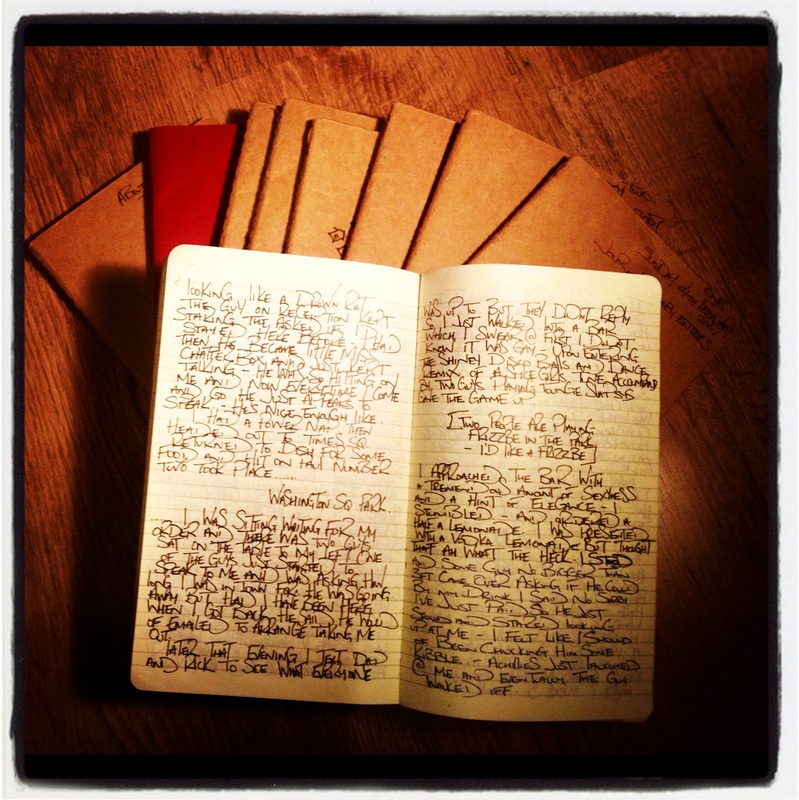 LOOKING LIKE A DROWN RAT
THE GUY ON RECEPTION KEPT
STARING THE ASKED IF I HAD
STAYED HERE BEFORE I
THEN HE BECAME LITTLE MISS
CHATTER BOX AND JUST KEPT
TALKING - HE WAS HITTING ON
ME AND NOW EVERYTIME I COME
AND GO HE JUST APPEARS TO
SPEAK - HE'S NICE ENOUGH LIKE.
HAD A POWER NAP THEN
HEADED OUT TO TIMES SQ
RETURNED TO DISH FOR SOME
FOOD AND HIT ON HAUL NUMBER
TWO TOOK PLACE......
WASHINGTON SQ PARK.
.... I WAS SITTING WAITING FOR MY
ORDER AND THERE WAS TWO GUYS
SAT ON THE TABLE TO MY LEFT ONE
OF THE GUYS JUST STARTED TO
SPEAK TO ME AND WAS ASKING HOW
LONG I WAS IN TOWN FOR. HE WAS GOING
AWAY BUT HAD I HAVE BEEN HERE
WHEN I GOT BACK HE SAID HE WOULD
OF EMAILED TO ARRANGE TAKING ME
OUT.
LATER THAT EVENING I TEXT DAD
AND RICK TO SEE WHAT EVERYONE
WAS UP TO BUT THEY DIDN'T REPLY
SO I JUST WALKED INTO A BAR
WHICH, I SWEAR @ FIRST I DID NOT
KNOW IT WAS GAY. UPON ENTERING
THE SHINEY DISCO BALLS AND DANCE
REMIX OF A NICE GIRLS TUNE ACCOMPANIED
BY TWO GUYS PLAYING TOUNGE
GAVE THE GAME UP
[TWO PEOPLE ARE PLAYING
FRIZZBE IN THE PARK
- I'D LIKE A FRIZZBE]
I APPROACHED THE BAR WITH
A TREMENDOUS AMOUNT OF SEXYNESS
AND A HINT OF ELEGANCE - I
STUMBLED - AND ORDERED A
HALF A LEMONADE. I WAS PRESENTED
WITH A VODKA LEMONADE BUT THOUGHT
THAT AH WHAT THE HECK. I
AND SOME GUY NO BIGGER THAN
CAME OVER ASKING IF HE COULD
BUY MY DRINK I SAID NO SORRY
I'VE JUST PAID SO HE JUST
STOOD AND STARED LOOKING
UP AT ME - I FELT LIKE I SHOULD
OF BEEN CHUCKING HIM SOME
KIBBLE. - ACHILLES JUST LAUGHED
@ ME AND EVENTUALLY THE GUY
WALKED OFF.